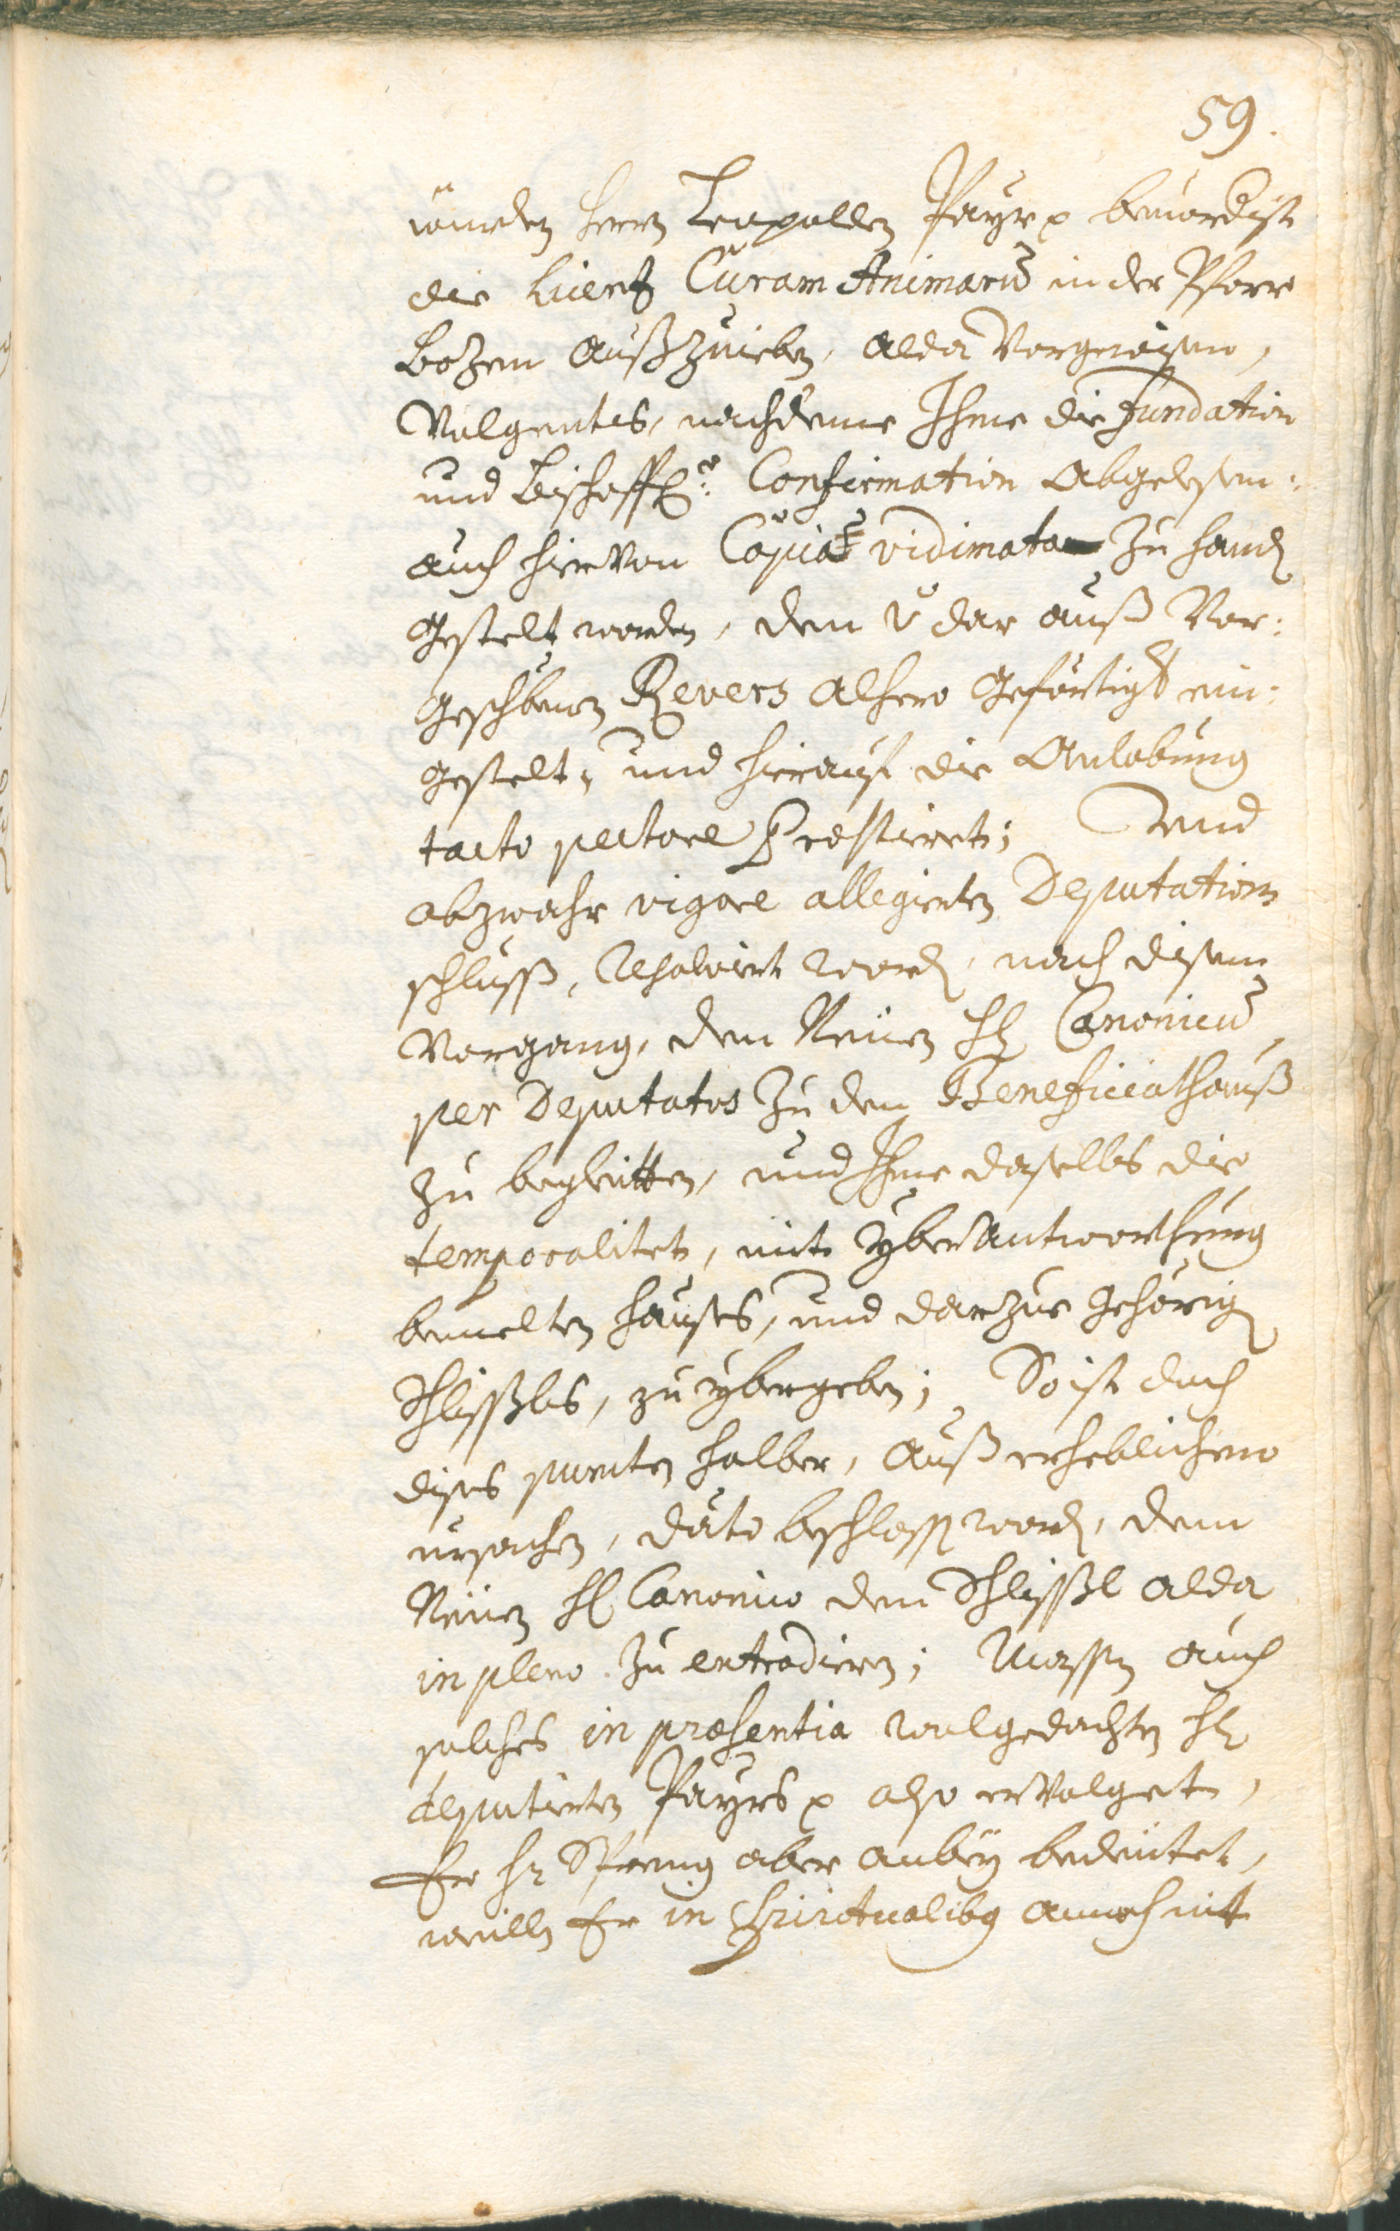 59.
würden Herrn Leopolden Payr p bevordist
die Licenz Curam Animarum in der Pfarr
Bozen Außzuieben, alda Vorgewisen,
Volgentes, nachdeme Ihme die Fundation
und Bischoffl: Confirmation Abgelesen:
auch hiervon Copia vidimata zu handen
Gestelt worden, den dar auß Vor:
Geschribnen Revers alhero Geförtigt ein:
gestelt, und hierauf die Anlobung
tacto pectore Prestieret; Und
obzwahr vigore allegierten Deputations
schluss, resolviert worden, nach disem
Vorgang, den Neüen Hn Canonicum
per Deputatos zu dem Beneficiathauß
zu begleitten, und Ihme daselbs die
temporalitet, mit yberantworthung
bemelten Hauses, und darzue gehörigen
Schlissls, zu ybergeben; So ist doch
dises puncten halber, Auß erheblichen
ursachen, dato beschlossen worden, dem
Neüen Hn Canonico den Schlissl alda
in pleno zu extradieren; Massen auch
solches in præsentia wolgedachten Hn
deputierten Payrs p also ervolget,
Er Hr Spreng aber anbey bedeütet,
weillen Er in Spiritualibus annoch nit